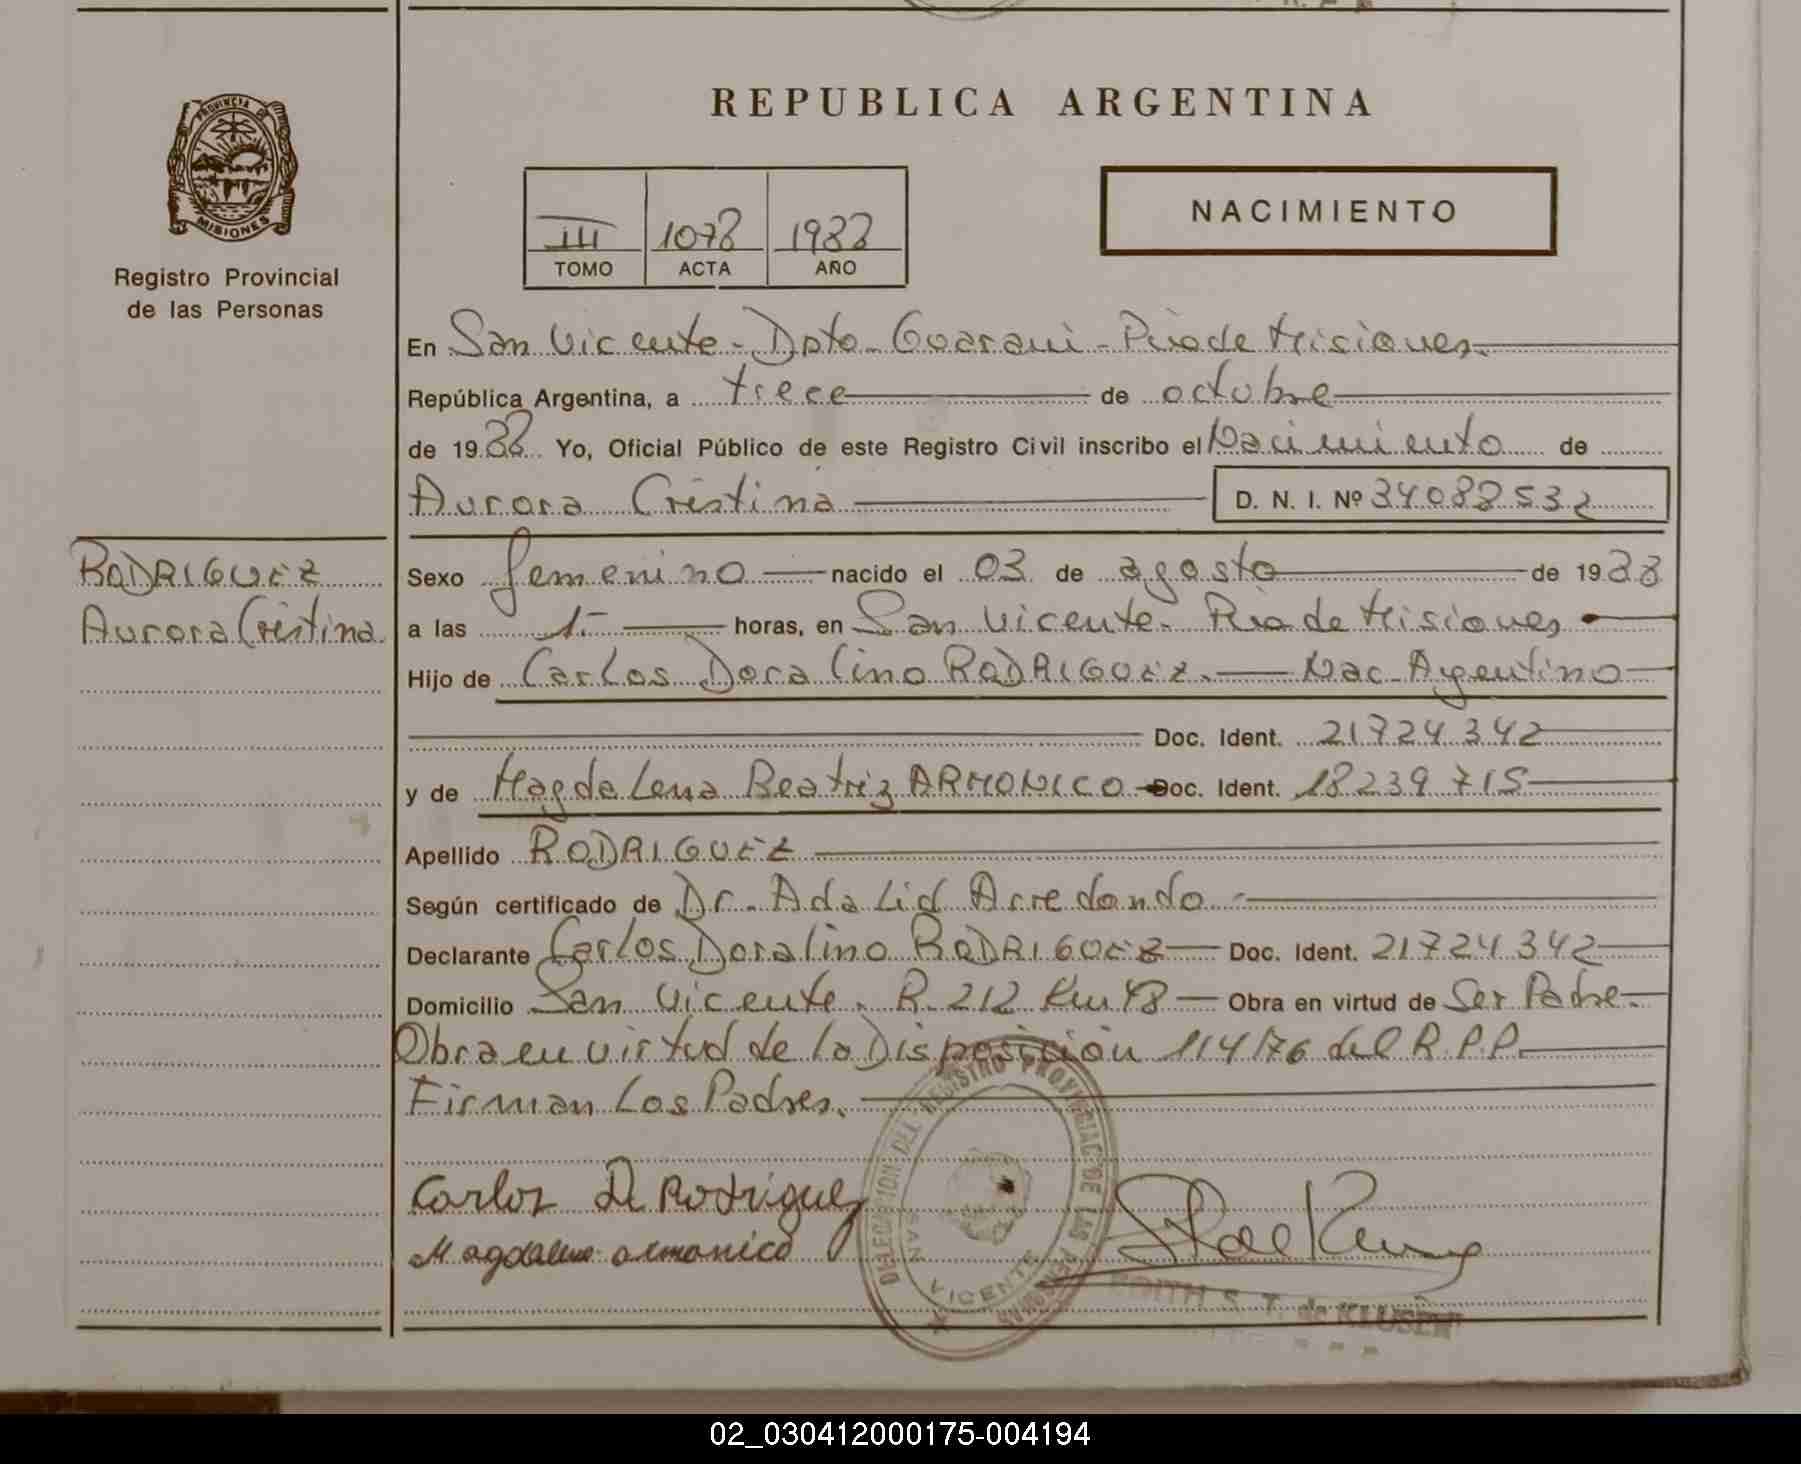 REPUBLICA ARGENTINA
PROVINCIA DE
MISIONES
Registro Provincial
de las Personas
III 1078 1988
TOMO ACTA AÑO
NACIMIENTO
En San Vicente - Dpto- Guarani - Pcia de Misiones.
República Argentina, a trece de octubre
de 1988 Yo, Oficial Público de este Registro Civil inscribo el Nacimiento de
Aurora Cristina D. N. I. Nº 34088532
RODRIGUEZ
Aurora Cristina
Sexo femenino nacido el 03 de agosto de 1988
a las 1.- horas, en San Vicente. Pcia de Misiones
Hijo de Carlos Doralino RODRIGUEZ. Nac. Argentino
Doc. Ident. 21724342
y de Magdalena Beatriz ARMONICO Doc. Ident. 18239715
Apellido RODRIGUEZ
Según certificado de Dr. Adalid Arredondo
Declarante Carlos Doralino RODRIGUEZ Doc. Ident. 21724342
Domicilio San Vicente. R. 212 Km 48 Obra en virtud de Ser Padre.
Obra en virtud de la Disposición 114/76 del R.P.P.
Firman Los Padres.
Carlos D Rodriguez
Magdalena armonico
DELEGACION DEL REGISTRO PROVINCIAL DE LAS PERSONAS
SAN VICENTE
EDITH S. T. de KLUSEN
02_030412000175-004194